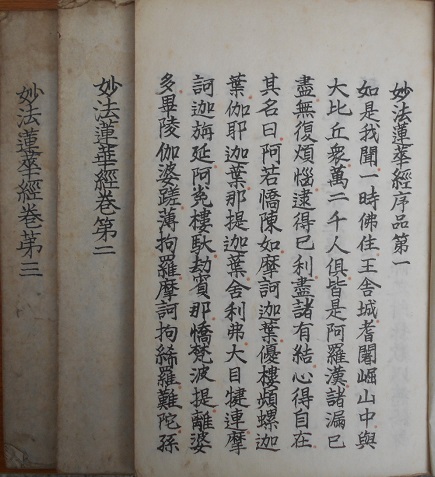 妙法蓮華經序品第一
如是我聞一時佛住王舎城耆闍崛山中與
大比丘衆萬二千人俱皆是阿羅漢諸漏已
盡無復煩惱逮得已利盡諸有結心得自在
其名曰阿若憍陳如摩訶迦葉優樓頻螺迦
葉伽耶迦葉那提迦葉舎利弗大目犍連摩
訶迦旃延阿㝹樓馱劫賓那憍梵波提離婆
多畢陵伽婆蹉薄拘羅摩訶拘絺羅難陀孫
妙法蓮華經卷第二
妙法蓮華經卷苐三